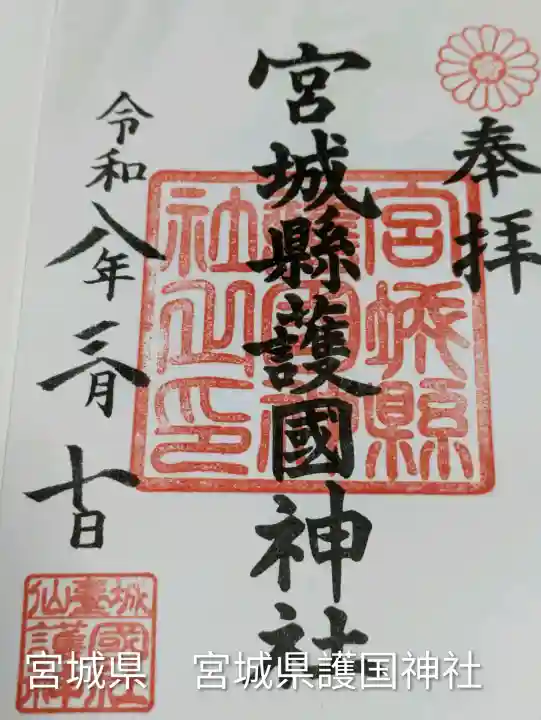 奉拝
宮城縣護國神社
宮城縣護國神社之印
令和八年三月十日
宮城県　宮城県護国神社